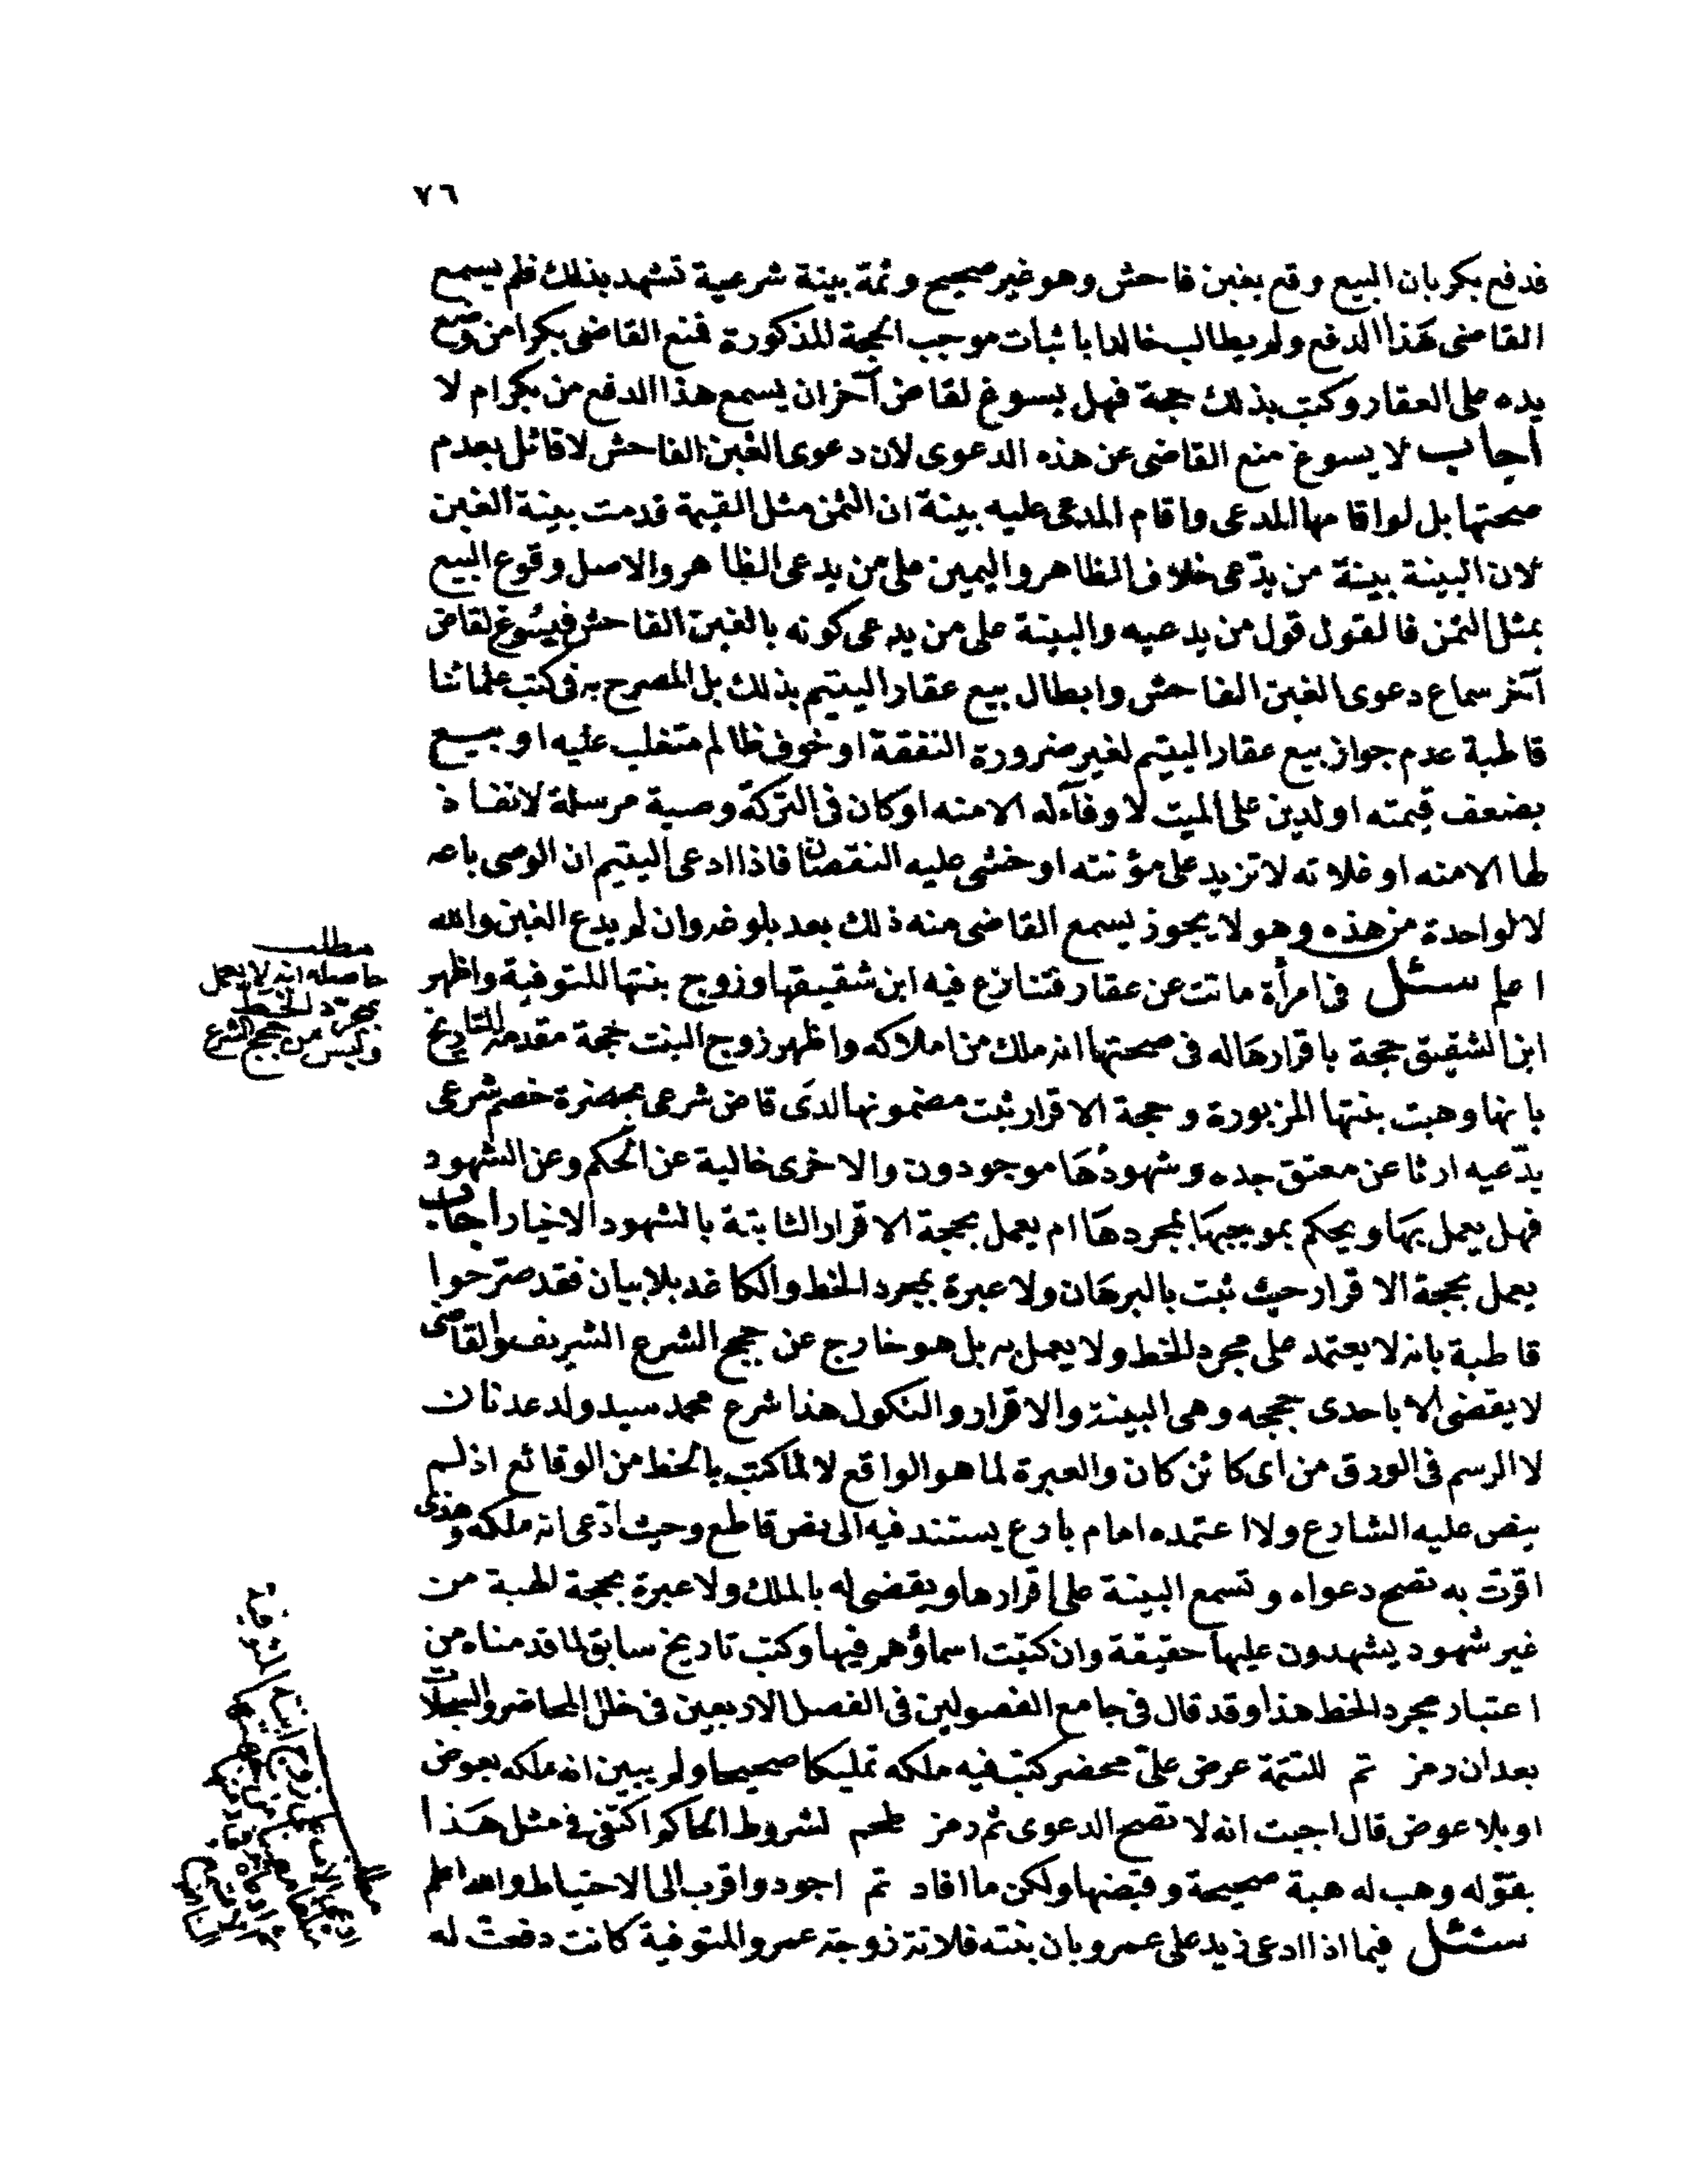 ٧٦
فدفع بكر بان البيع وقع بغبن فاحش وهو غير صحيح وثمة بينة شرعية تشهد بذلك فلم يسمع
القاضى هذا الدفع ولم يطالب خالدا باثبات موجب الحجة المذكورة فمنع القاضى بكرا من وضع
يده على العقار وكتب بذلك حجة فهل يسوغ لقاض آخر ان يسمع هذا الدفع من بكر ام لا
اجاب لا يسوغ منع القاضى عن هذه الدعوى لان دعوى الغبن الفاحش لا قائل بعدم
صحتها بل لو اقامها المدعى واقام المدعى عليه بينة ان الثمن مثل القيمة قدمت بينة الغبن
لان البينة بينة من يدّعى خلاف الظاهر واليمين على من يدعى الظاهر والاصل وقوع البيع
بمثل الثمن فالقول قول من يدعيه والبينة على من يدعى كونه بالغبن الفاحش فيسُوغ لقاض
آخر سماع دعوى الغبن الفاحش وابطال بيع عقار اليتيم بذلك بل المصرح به فى كتب علمائنا
قاطبة عدم جواز بيع عقار اليتيم لغير ضرورة النفقة او خوف ظالم متغلب عليه او بيع
بضعف قيمته او لدين على الميت لا وفآء له الا منه او كان فى التركة وصية مرسلة لا نفاذ
لها الا منه او غلاته لا تزيد على مؤنته او خشى عليه النقصان فاذا ادعى اليتيم ان الوصى باعه
لا لواحدة من هذه وهو لا يجوز يسمع القاضى منه ذلك بعد بلوغه وان لم يدع الغبن والله
اعلم سئل فى امرأة ماتت عن عقار فتنازع فيه ابن شقيقها وزوج بنتها المتوفية واظهر
ابن الشقيق حجة باقرارها له فى صحتها انه ملك من املاكه واظهر زوج البنت حجة مقدمة التاريخ
بانها وهبت بنتها المزبورة وحجة الاقرار ثبت مضمونها لدى قاض شرعى بحضرة خصم شرعى
يدّعيه ارثا عن معتق جده وشهودُها موجودون والاخرى خالية عن الحكم وعن الشهود
فهل يعمل بها ويحكم بموجبها بمجردها ام يعمل بحجة الاقرار الثابتة بالشهود الاخيار اجاب
يعمل بحجة الاقرار حيث ثبت بالبرهان ولا عبرة بمجرد الخط والكاغد بلا بيان فقد صرّحوا
قاطبة بانه لا يعتمد على مجرد الخط ولا يعمل به بل هو خارج عن حجج الشرع الشريف والقاضى
لا يقضى الا باحدى حججه وهى البينة والاقرار والنكول هذا شرع محمد سيد ولد عدنان
لا الرسم فى الورق من اى كائن كان والعبرة لما هو الواقع لا لما كتب بالخط من الوقائع اذ لم
ينص عليه الشارع ولا اعتمده امام بارع يستند فيه الى نص قاطع وحيث ادّعى انه ملكه
اقرّت به تصح دعواه وتسمع البينة على اقرارها ويقضى له بالملك ولا عبرة بحجة الهبة من
غير شهود يشهدون عليها حقيقة وان كتبت اسماؤهم فيها وكتب تاريخ سابق لما قدمناه من
اعتبار مجرد الخط هذا وقد قال فى جامع الفصولين فى الفصل الاربعين فى خلل المحاضر والسجلات
بعد ان رمز تم للتتمة عرض علىّ محضر كتب فيه ملكه تمليكا صحيحا ولم يبين انه ملكه بعوض
او بلا عوض قال اجبت انه لا تصح الدعوى ثم رمز طحم لشروط الحاكم اكتفى فى مثل هذا
بقوله وهب له هبة صحيحة وقبضها ولكن ما افاد تم اجود واقرب الى الاحتياط والله اعلم
سئل فيما اذا ادعى زيد على عمرو بان بنته فلانة زوجة عمرو المتوفية كانت دفعت له
مطلب
حاصله انه لا يعمل
بمجرد الخط
وليس من حجج الشرع